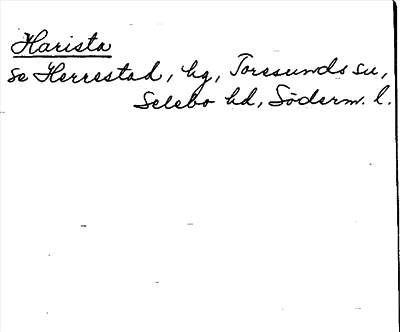 Harista
se Herrestad, hg, Toresunds sn,
Selebo hd, Söderm. l.